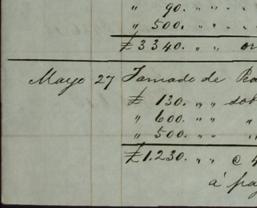 " 90. " "
" 500. " "
₤ 3340. " "
Mayo 27 Tomado de
₤ 130. " "
" 600. " " "
" 500. " "
₤ 1.230. " " @ 4
á pa